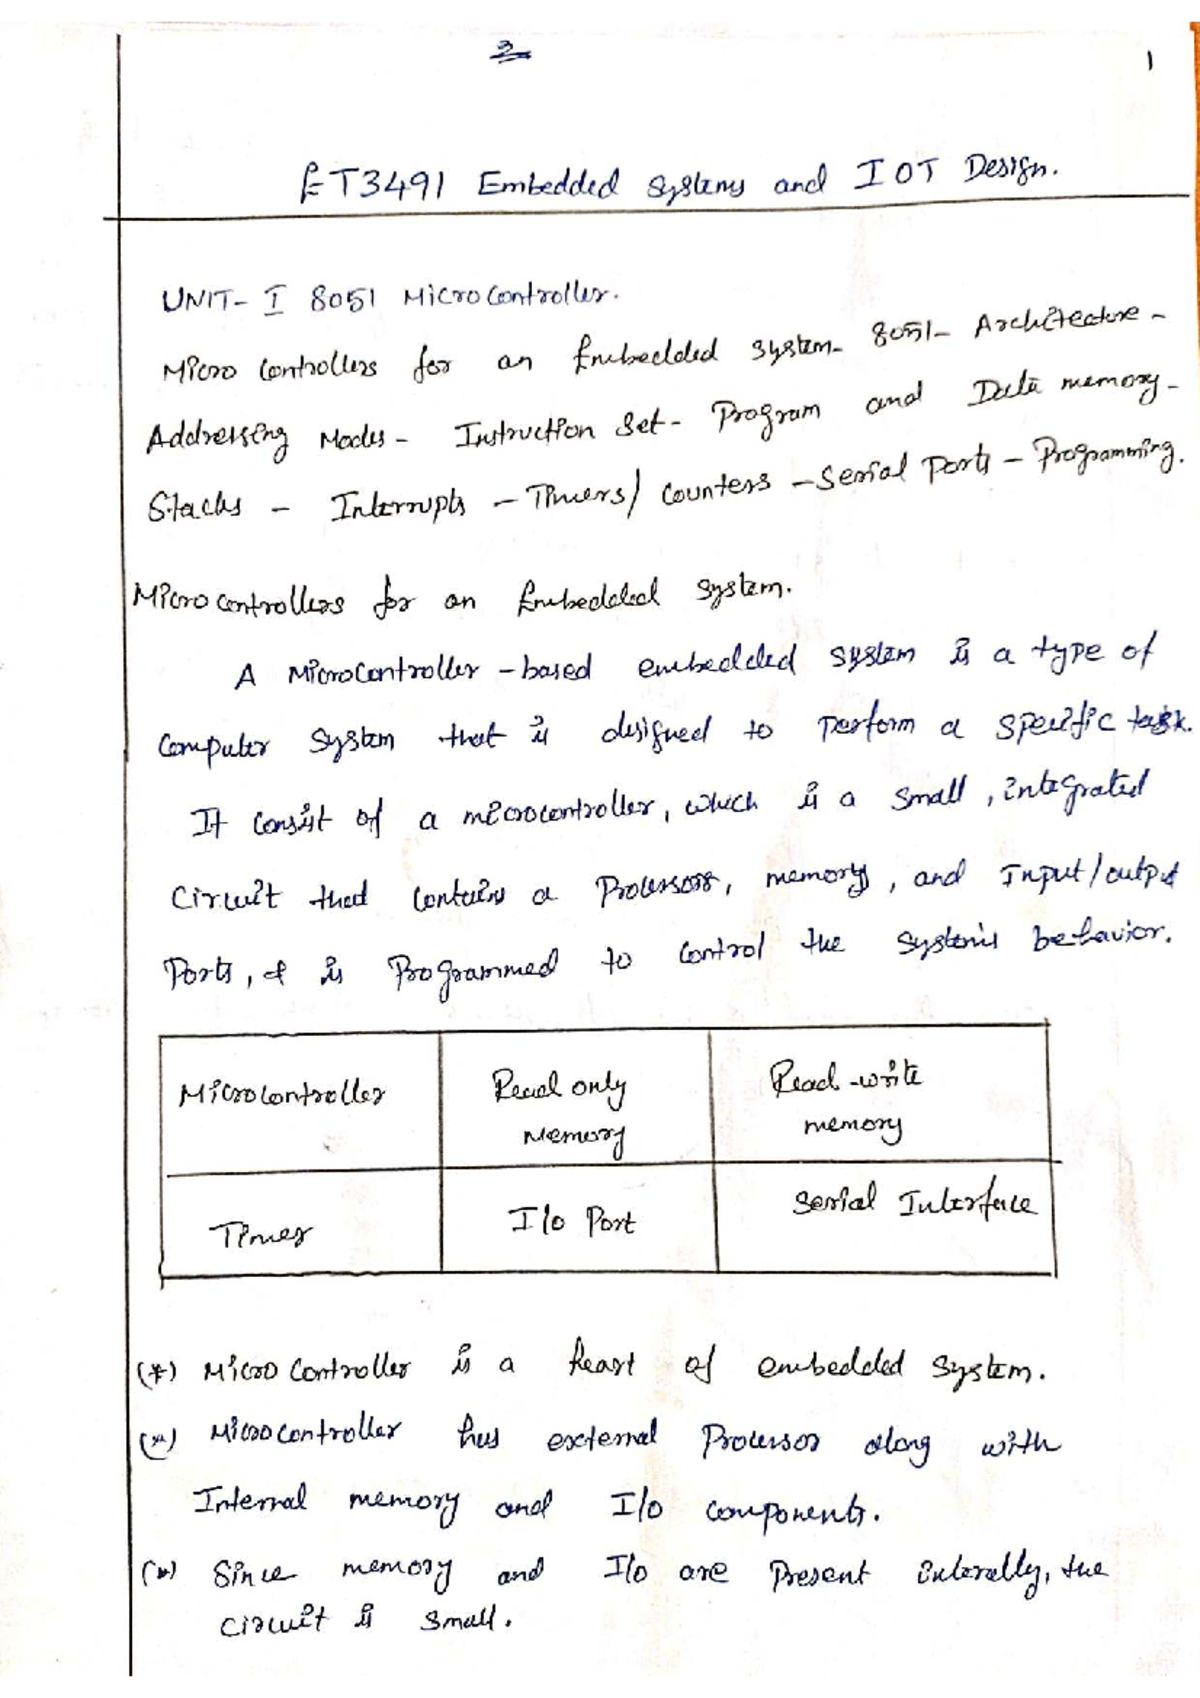 2
1
ET3491 Embedded Systems and IOT Design.
UNIT- I 8051 Microcontroller.
Micro controllers for an Embedded system- 8051- Architecture -
Addressing Modes - Instruction Set - Program and Data memory -
Stacks - Interrupts - Timers/ Counters - Serial Ports - Programming.
Microcontrollers for an Embedded system.
A Microcontroller - based embedded system is a type of
computer system that is designed to perform a specific task.
It consist of a microcontroller, which is a small, integrated
circuit that contains a Processors, memory, and Input/output
Ports, & is Programmed to control the system's behavior.
Microcontroller
Read only
Memory
Read-write
memory
Timer
I/o Port
Serial Interface
(*) Micro Controller is a heart of embedded system.
(*) Microcontroller has external Processor along with
Internal memory and I/o components.
(*) Since memory and I/o are Present interally, the
circuit is small.